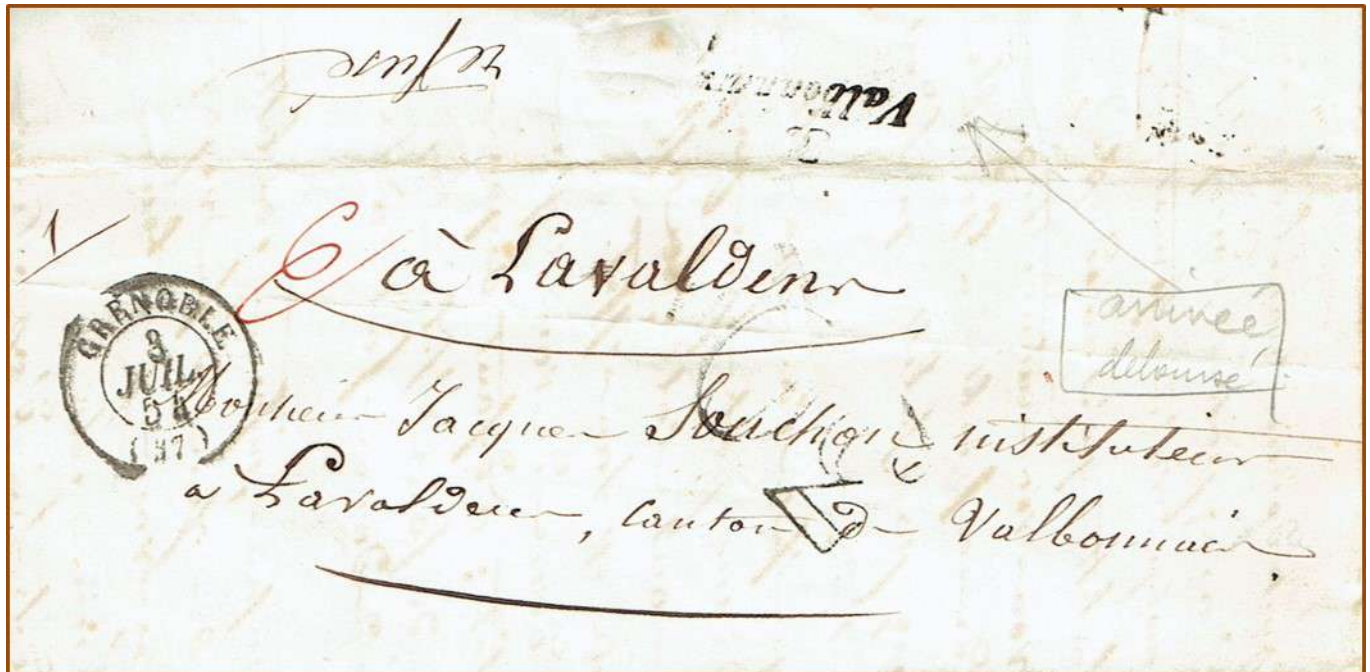 refusé
D
Valbonnais
1
6
à Lavaldens
GRENOBLE
3
JUIL.
(37)
arrivée
déboursé
Monsieur Jacques Souchon instituteur
à Lavaldens, canton de Valbonnais